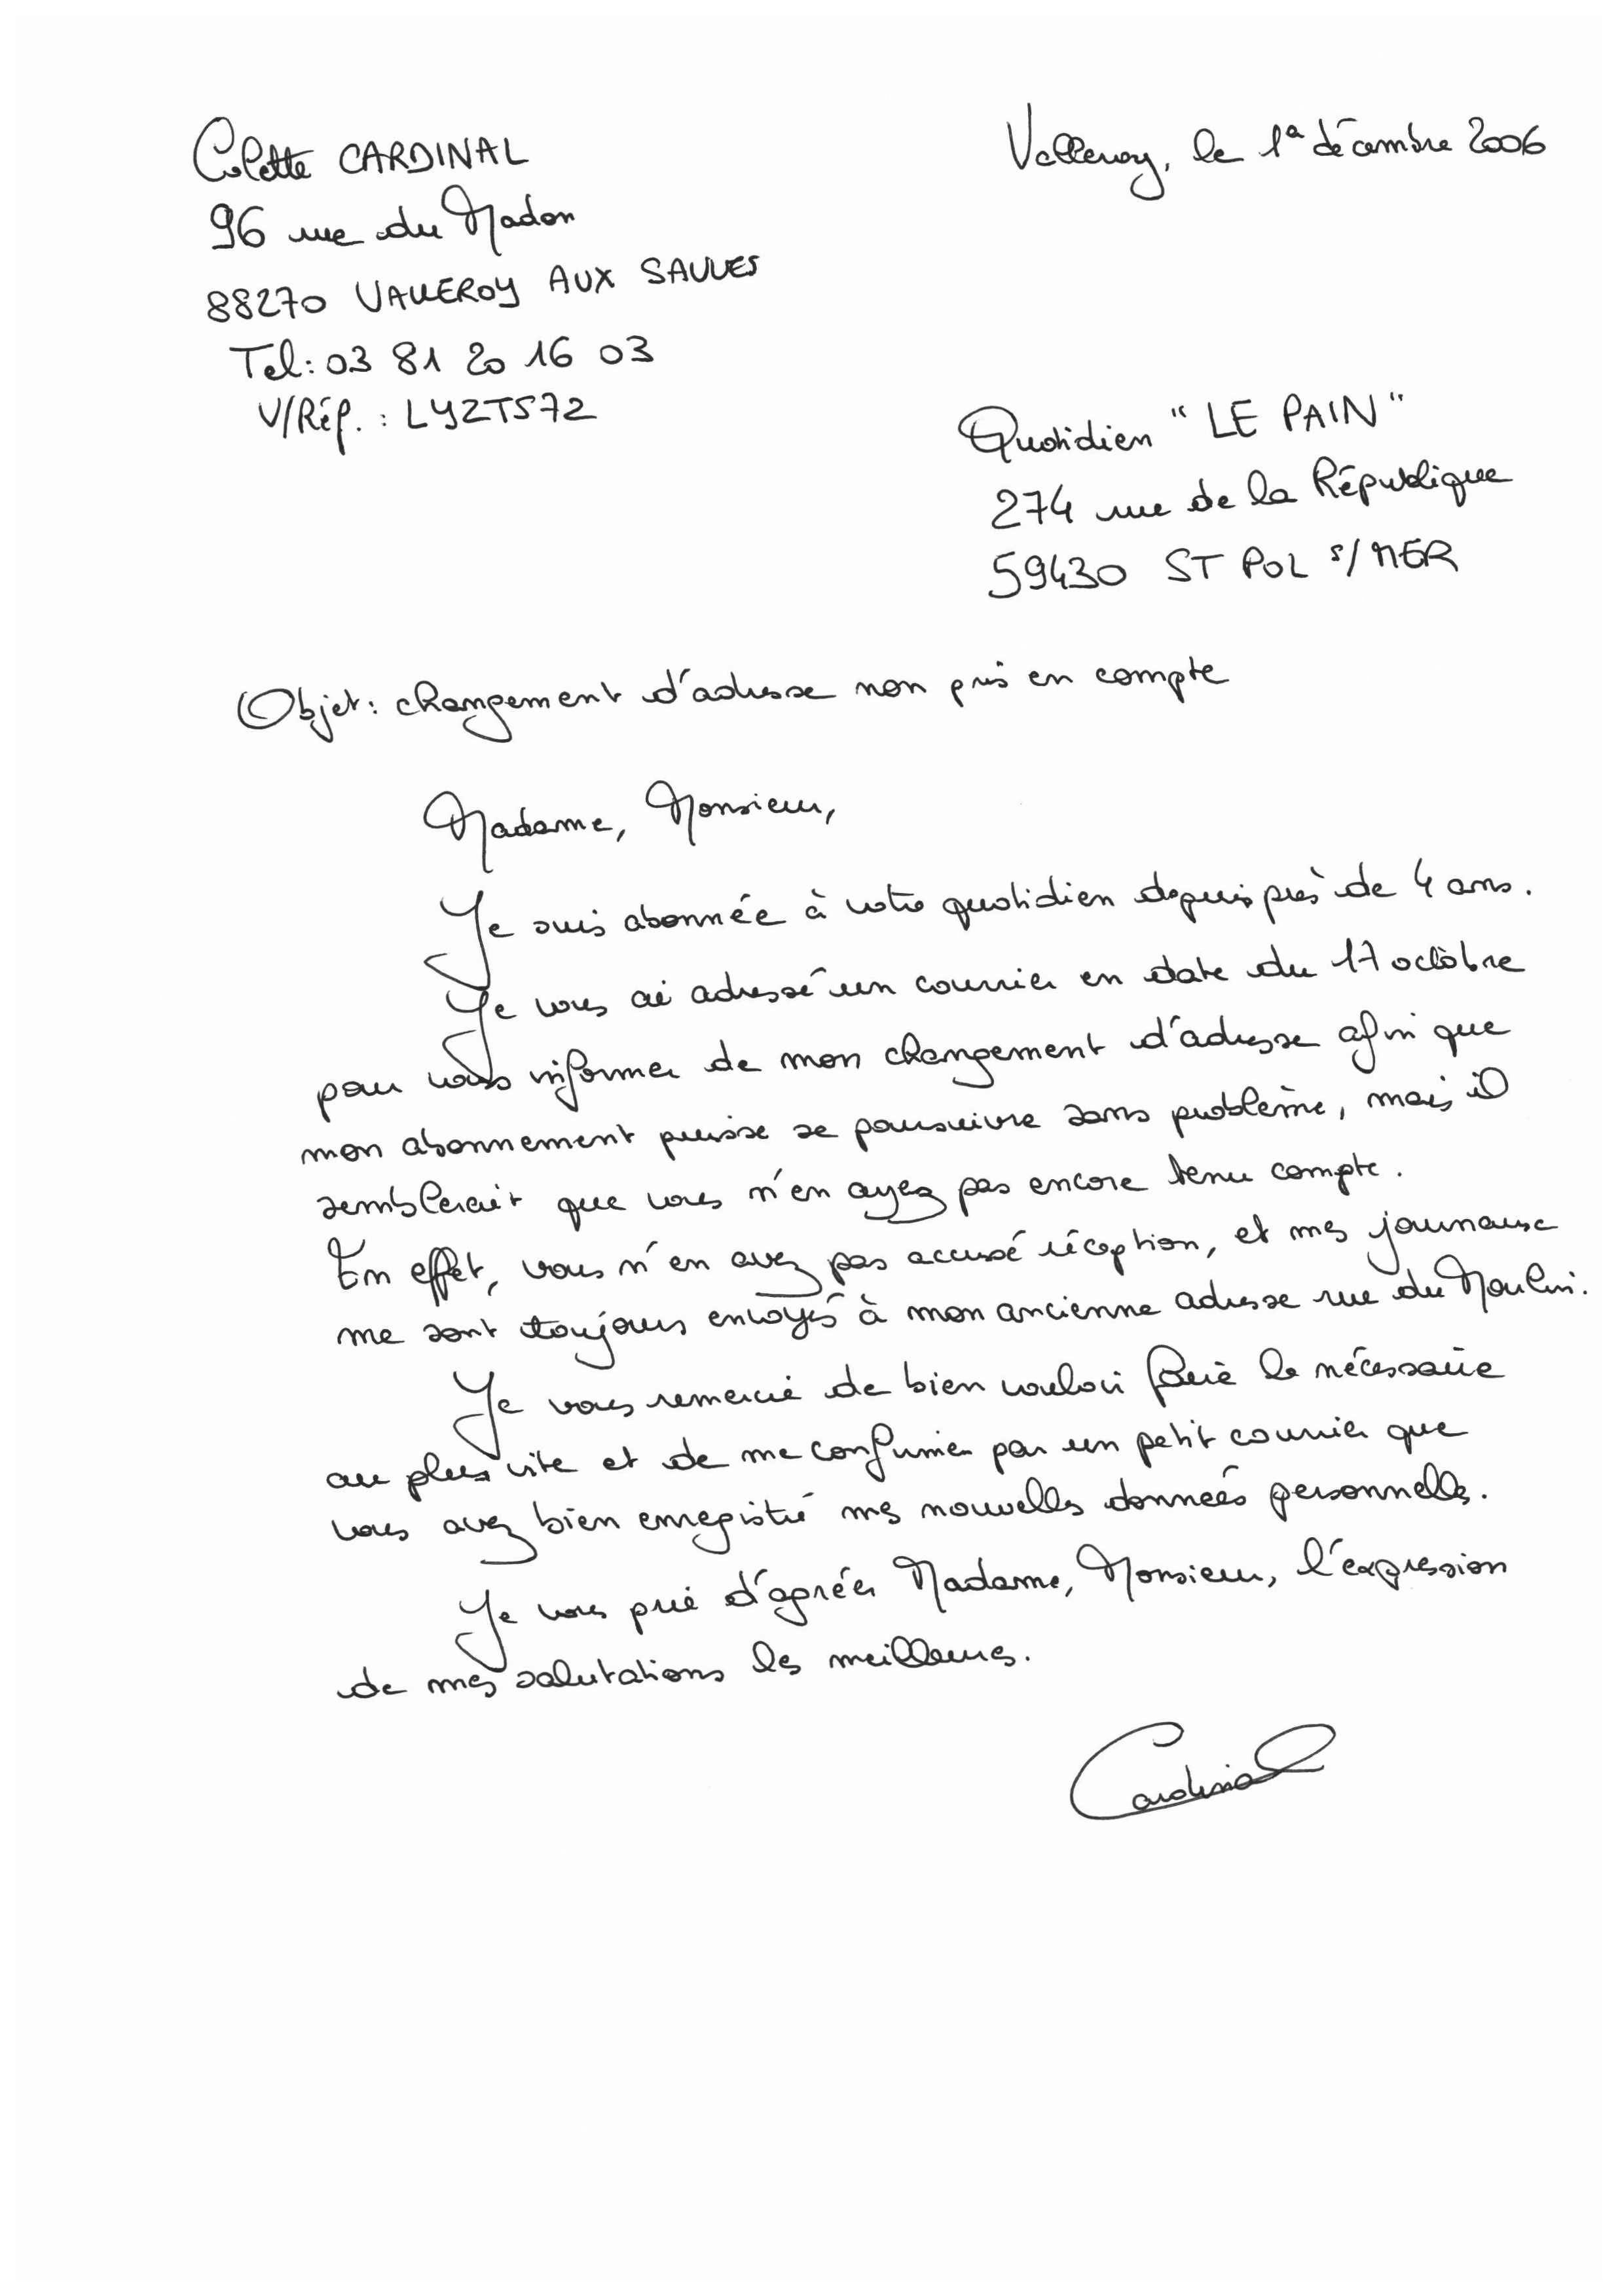 Colette CARDINAL
96 rue du Madon
88270 VALLEROY AUX SAULES
Tel: 03 81 20 16 03
V/Réf. : LYZTS72
Valleroy, le 1er décembre 2006
Quotidien "LE PAIN"
274 rue de la République
59430 ST POL s/MER
Objet: changement d'adresse non pris en compte
Madame, Monsieur,
Je suis abonnée à votre quotidien depuis près de 4 ans.
Je vous ai adressé un courrier en date du 17 octobre
pour vous informer de mon changement d'adresse afin que
mon abonnement puisse se poursuivre sans problème, mais il
semblerait que vous n'en ayez pas encore tenu compte.
En effet, vous n'en avez pas accusé réception, et mes journaux
me sont toujours envoyés à mon ancienne adresse rue du Moulin.
Je vous remercie de bien vouloir faire le nécessaire
au plus vite et de me confirmer par un petit courrier que
vous avez bien enregistré mes nouvelles données personnelles.
Je vous prie d'agréer Madame, Monsieur, l'expression
de mes salutations les meilleures.
Cardinal